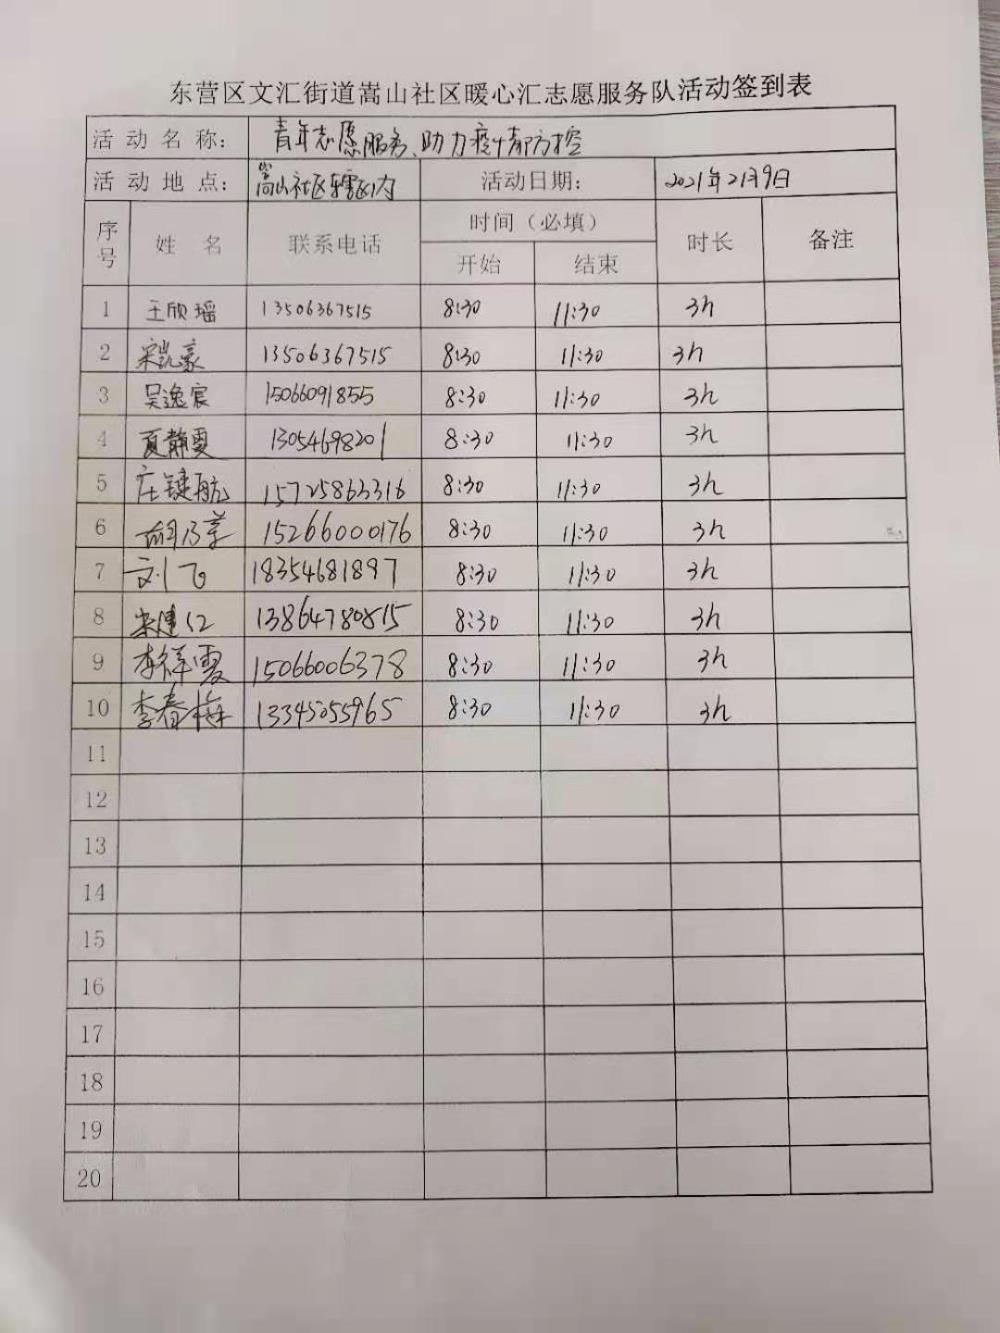 东营区文汇街道嵩山社区暖心汇志愿服务队活动签到表
活动名称： 青年志愿服务、助力疫情防控
活动地点： 嵩山社区辖区内 活动日期： 2021年2月9日
序号 姓名 联系电话 时间（必填） 时长 备注
开始 结束
1 王欣瑶 13506367515 8:30 11:30 3h
2 宋凯豪 13506367515 8:30 11:30 3h
3 吴逸宸 15066091855 8:30 11:30 3h
4 夏静雯 13054698201 8:30 11:30 3h
5 庄键航 15725863316 8:30 11:30 3h
6 胡乃 15266000176 8:30 11:30 3h
7 刘飞 18354681897 8:30 11:30 3h
8 宋建仁 13864780815 8:30 11:30 3h
9 李祥霞 15066006378 8:30 11:30 3h
10 李春梅 13345055965 8:30 11:30 3h
11
12
13
14
15
16
17
18
19
20